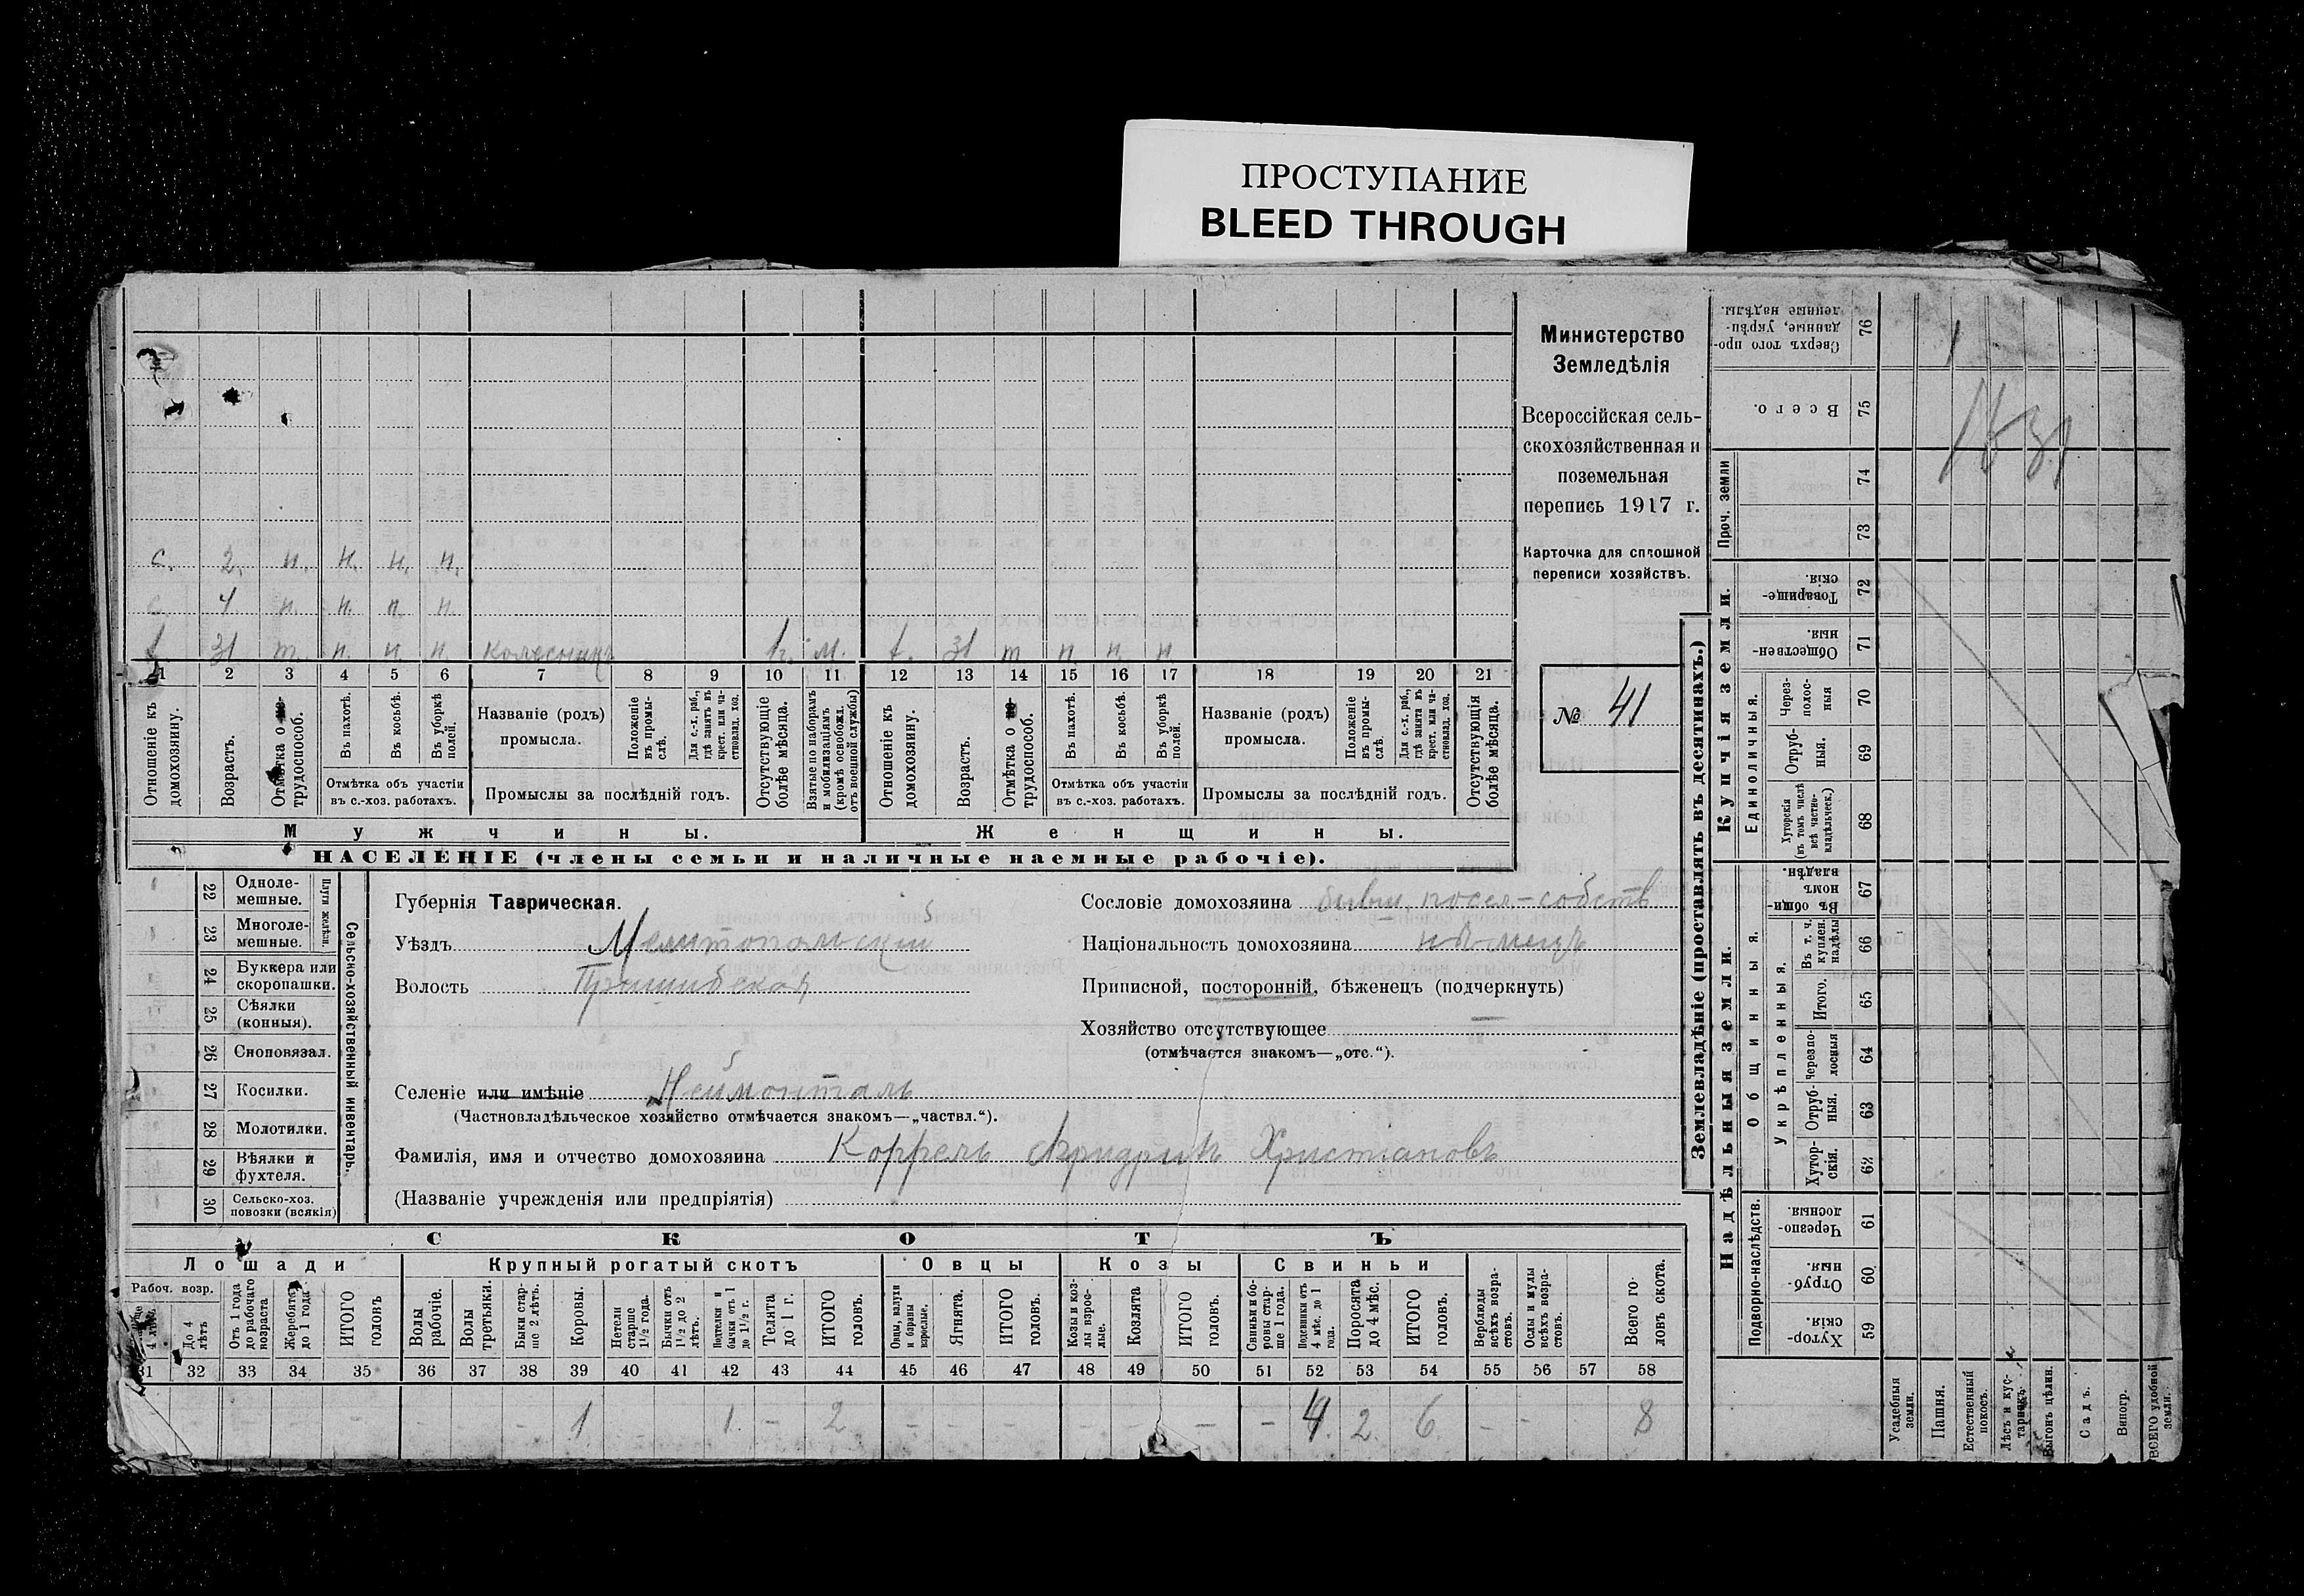 ПРОСТУПАНИЕ
BLEED THROUGH
Министерство
Земледѣлія
Всероссійская сель-
скохозяйственная и
поземельная
перепись 1917 г.
Карточка для сплошной
переписи хозяйствъ.
№ 41
с. 2. н. н. н. н.
4 н. н. н. н.
31 т. н. н. н. колесникъ м. 31 т н. н. н
1 2 3 4 5 6 7 8 9 10 11 12 13 14 15 16 17 18 19 20 21
Отношеніе къ домохозяину.
Возрастъ.
Отмѣтка о не-трудоспособ.
Въ пахотѣ.
Въ косьбѣ.
Въ уборкѣ полей.
Отмѣтка объ участіи
въ с.-хоз. работахъ.
Названіе (родъ)
промысла.
Положеніе въ промы-слѣ.
Для с.-х. раб., гдѣ занятъ въ крест. или ча-стновлад. хоз.
Промыслы за послѣдній годъ.
Отсутствующіе болѣе мѣсяца.
Взятые по наборамъ и мобилизаціямъ (кромѣ освобожд. отъ военной службы)
Отношеніе къ домохозяину.
Возрастъ.
Отмѣтка о не-трудоспособ.
Въ пахотѣ.
Въ косьбѣ.
Въ уборкѣ полей.
Отмѣтка объ участіи
въ с.-хоз. работахъ.
Названіе (родъ)
промысла.
Положеніе въ промы-слѣ.
Для с.-х. раб., гдѣ занята въ крест. или ча-стновлад. хоз.
Промыслы за послѣдній годъ.
Отсутствующія болѣе мѣсяца.
Мужчины.
Женщины.
НАСЕЛЕНІЕ (члены семьи и наличные наемные рабочіе).
22 Одноле-мешные.
23 Многоле-мешные.
Плуги желѣзн.
24 Буккера или скоропашки.
25 Сѣялки (конныя).
26 Сноповязал.
27 Косилки.
28 Молотилки.
29 Вѣялки и фухтеля.
30 Сельско-хоз. повозки (всякія)
Сельско-хозяйственный инвентарь.
Губернія Таврическая.
Уѣздъ Мелитопольскій
Волость Пришибская
Селеніе или имѣніе Неймонталь
(Частновладѣльческое хозяйство отмѣчается знакомъ—„частвл.“).
Фамилія, имя и отчество домохозяина Коррель Фридрихъ Христіановъ
(Названіе учрежденія или предпріятія)
Сословіе домохозяина бывш. посел-собств
Національность домохозяина нѣмецъ
Приписной, посторонній, бѣженецъ (подчеркнуть)
Хозяйство отсутствующее —
(отмѣчается знакомъ—„отс.“).
СКОТЪ
Лошади
Крупный рогатый скотъ
Овцы
Козы
Свиньи
Рабоч. возр.
До 4 лѣтъ
Отъ 1 года до рабочаго возраста
Жеребята до 1 года
ИТОГО головъ
Волы рабочіе.
Волы третьяки.
Быки стар-ше 2 лѣтъ.
Коровы.
Нетели старше 1½ года.
Бычки отъ 1½ до 2 лѣтъ.
Подтелки и бычки отъ 1 до 1½ г.
Телята до 1 г.
ИТОГО головъ.
Овцы, валухи и бараны взрослые.
Ягнята.
ИТОГО головъ.
Козы и коз-лы взрос-лые.
Козлята
ИТОГО головъ.
Свиньи и бо-ровы стар-ше 1 года.
Подсвинки отъ 4 мѣс. до 1 года.
Поросята до 4 мѣс.
ИТОГО головъ.
Верблюды всѣхъ возра-стовъ.
Ослы и мулы всѣхъ возра-стовъ.
Всего го-ловъ скота.
31 32 33 34 35 36 37 38 39 40 41 42 43 44 45 46 47 48 49 50 51 52 53 54 55 56 57 58
1 1 - 2 - 4 2 6 - - 8
Землевладѣніе (проставлять въ десятинахъ.)
Купчія земли.
Надѣльныя земли.
Сверхъ того про-данные, укрѣп-ленные надѣлы. 76
Всего. 75
Проч. земли
74
73
Товарище-скія. 72
Обществен-ныя. 71
Единоличныя.
Через-полос-ныя 70
Отруб-ныя. 69
Хуторскія (въ томъ числѣ всѣ частно-владѣльческ.) 68
Общинныя.
Въ общин-номъ владѣн. 67
Укрѣпленныя.
Въ т. ч. куплен. надѣлы 66
Итого. 65
Черезпо-лосныя 64
Отруб-ныя. 63
Хутор-скія. 62
Подворно-наслѣдств.
Черезпо-лосныя. 61
Отруб-ныя. 60
Хутор-скія. 59
Усадебныя земли.
Пашня.
Естественный покосъ.
Лѣсъ и кус-тарникъ
Выгонъ цѣлин.
Садъ.
Виногр.
ВСЕГО удобной земли.